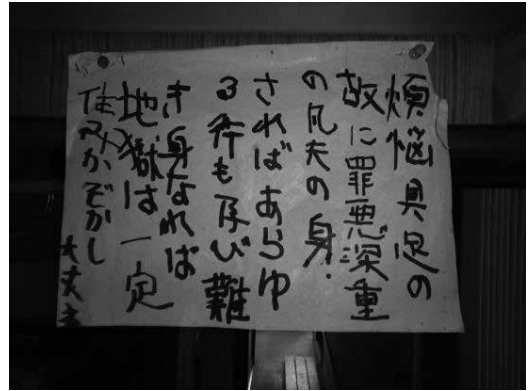 煩悩具足の
故に罪悪深重
の凡夫の身.
さればあらゆ
る行も及び難
き身なれば
地獄は一定
住みかぞかし
大丈夫